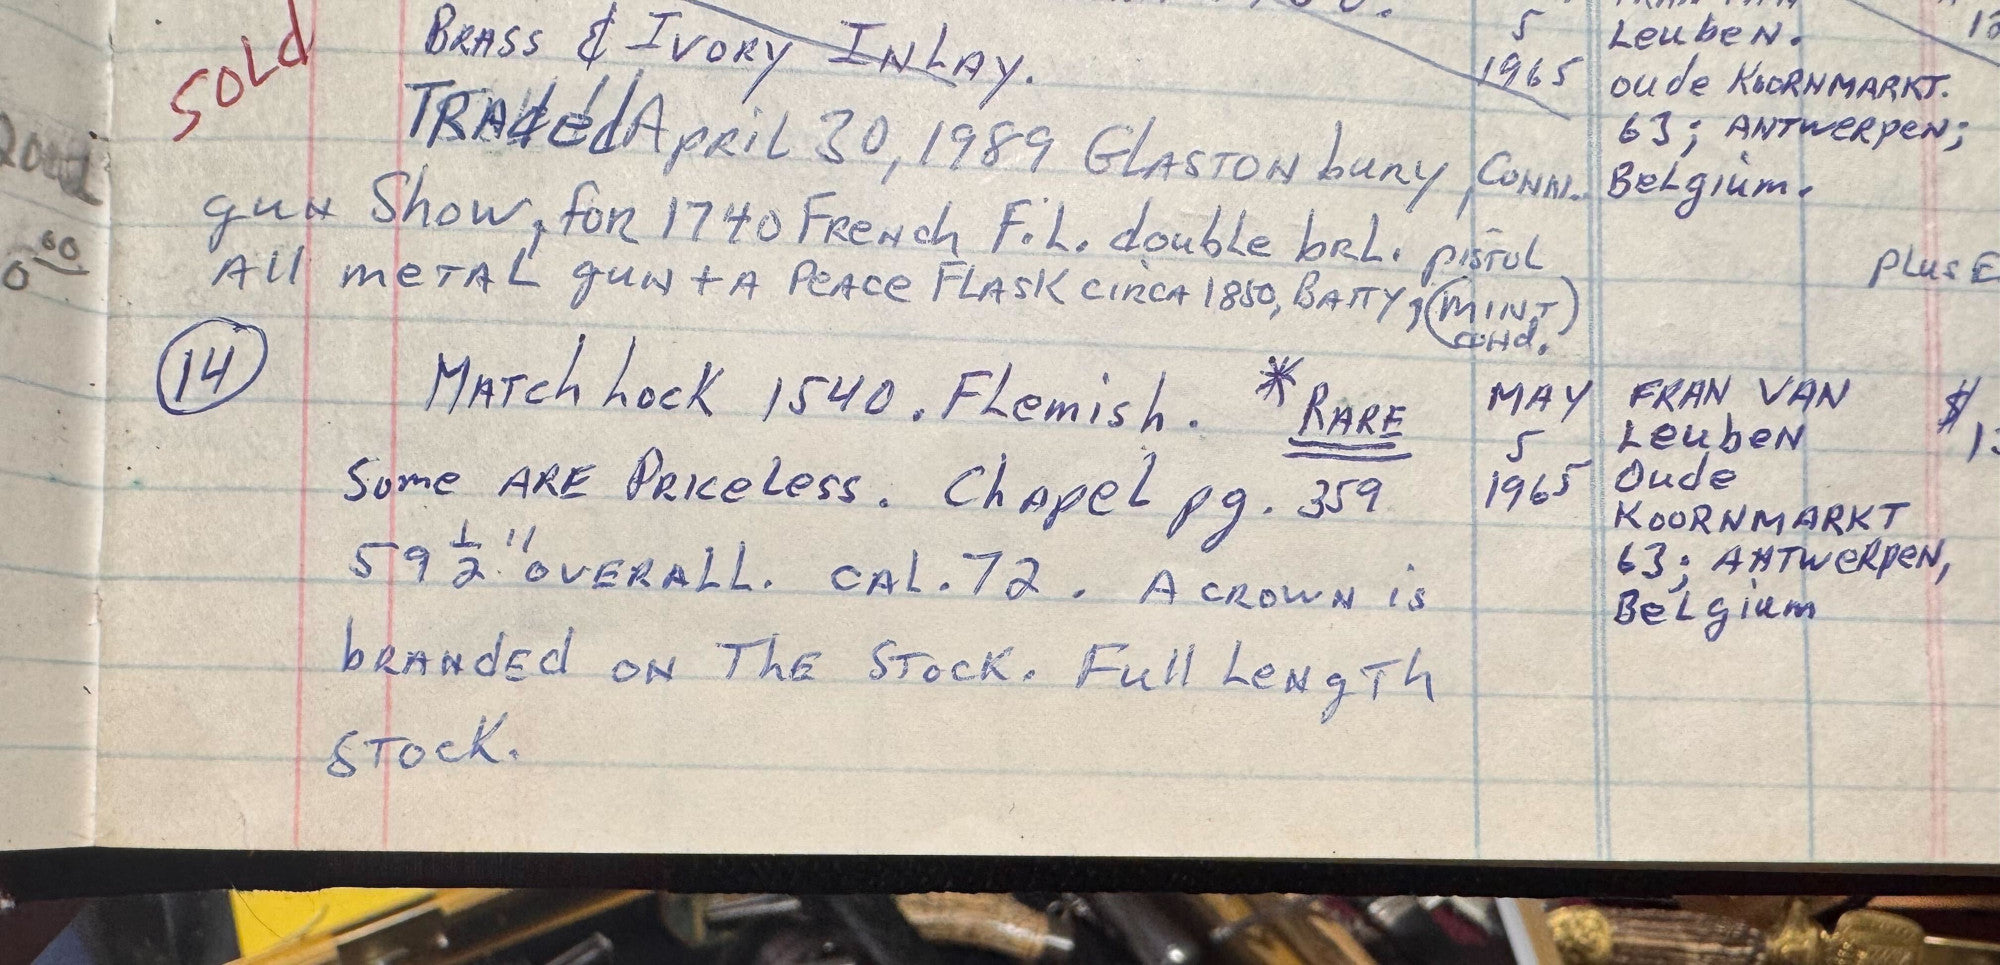 SOLd
BRASS & IVORY INLAY.
TRAdEd April 30, 1989 GLASTONbury, CONN.
gun Show, for 1740 French F.L. double brl. pistol
All metal gun + A Peace Flask circa 1850, BATTY, MINT
cond.
5
1965
Leuben.
oude KOORNMARKT.
63; ANTwerpen;
Belgium.
plus E
14
Matchlock 1540. Flemish. * RARE
Some ARE Priceless. Chapel pg. 359
59 1/2" overall. CAL. 72. A crown is
branded on The Stock. Full Length
Stock.
MAY
5
1965
FRAN VAN
Leuben
Oude
KOORNMARKT
63; ANTwerpen,
Belgium
$